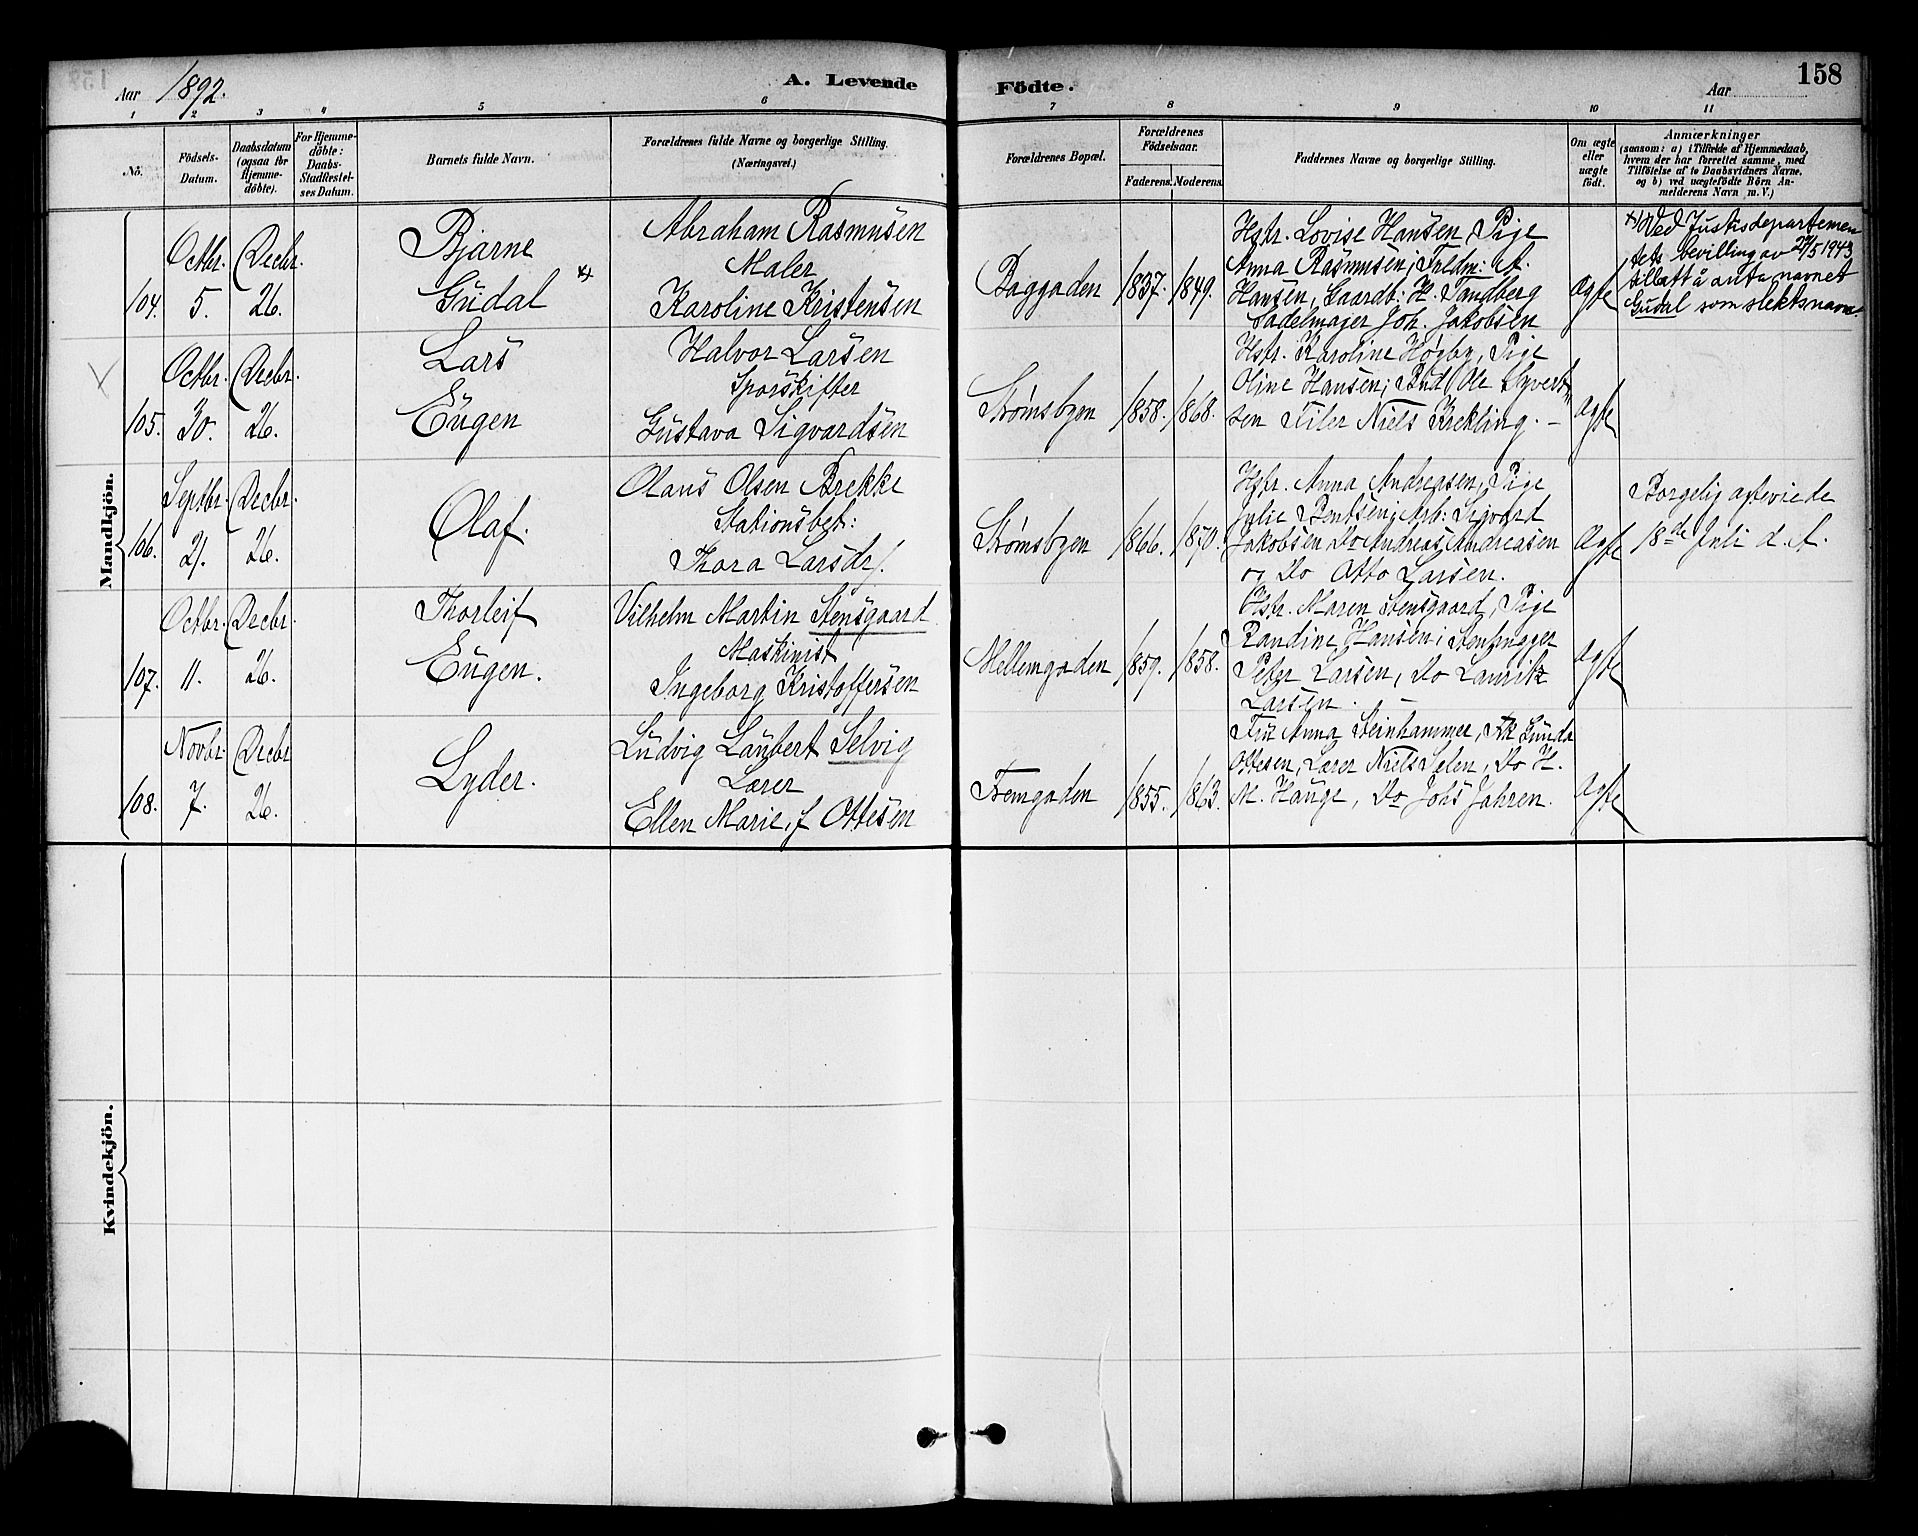 Aar 1892.
A. Levende
Födte.
158
Aar
1 2 3 4 5 6 7 8 9 10 11
No.
Födsels-
Datum.
Daabsdatum
(ogsaa for
Hjemme-
döbte).
For Hjemme-
döbte:
Daabs-
Stadfæstel-
ses Datum.
Barnets fulde Navn.
Forældrenes fulde Navne og borgerlige Stilling.
(Næringsvei.)
Forældrenes Bopæl.
Forældrenes
Födselsaar.
Faderens. Moderens.
Faddernes Navne og borgerlige Stilling.
Om ægte
eller
uægte
födt.
Anmærkninger
(saasom: a) i Tilfælde af Hjemmedaab,
hvem der har forrettet samme, med
Tilföielse af to Daabsvidners Navne,
og b) ved uægtefödte Börn An-
melderens Navn m. V.)
Mandkjön.
104.
Octbr.
5.
Decbr.
26.
Bjarne
Gudal x)
Abraham Rasmusen
Maler
Karoline Kristensen
Baggaden
1837. 1849.
Hstr. Lovise Hansen, Pige
Anna Rasmusen; Fuldm: A.
Hansen, Gaardb: H. Sandberg
Sadelmager Joh. Jakobsen
Ægte
x) Ved Justisdepartemen
tets bevilling av 27/5 1943
tillatt å anta navnet
Gudal som slektsnavn.
X
105.
Octbr.
30.
Decbr.
26.
Lars
Eugen
Halvor Larsen
Sporskifter
Gustava Sigvardsen
Strømsbyen
1858. 1868.
Hstr. Karoline Høgby, Pige
Oline Hansen; Bud Ole Syvert
sen Filer Niels Krekling. –
Ægte
106.
Septbr.
21.
Decbr.
26.
Olaf.
Olaus Olsen Brekke
Stationsbet:
Thora Larsdr.
Strømsbyen
1866. 1870.
Hstr. Anna Andreasen, Pige
Julie Bentsen; Arb: Sigvard
Jakobsen Do Andreas Andreasen
og Do Otto Larsen.
Ægte
Borgelig ægteviede
18de Juli d. A.
107.
Octbr.
11.
Decbr.
26.
Thorleif
Eugen.
Vilhelm Martin Stensgaard
Maskinist
Ingeborg Kristoffersen
Mellemgaden
1859. 1858.
Hstr. Maren Stensgaard, Pige
Randine Hansen; Stenhugger
Peter Larsen, Do Lauritz
Larsen. –
Ægte
108.
Novbr.
7.
Decbr
26.
Lyder.
Ludvig Laubert Selvig
Lærer
Ellen Marie, f Ottesen
Fremgaden
1855. 1863.
Fru Anna Steinhammer, Frk Gunda
Ottesen, Lærer Niels Selen, Do H.
M. Hauge, Do Johs Jahren.
Ægte
Kvindekjön.